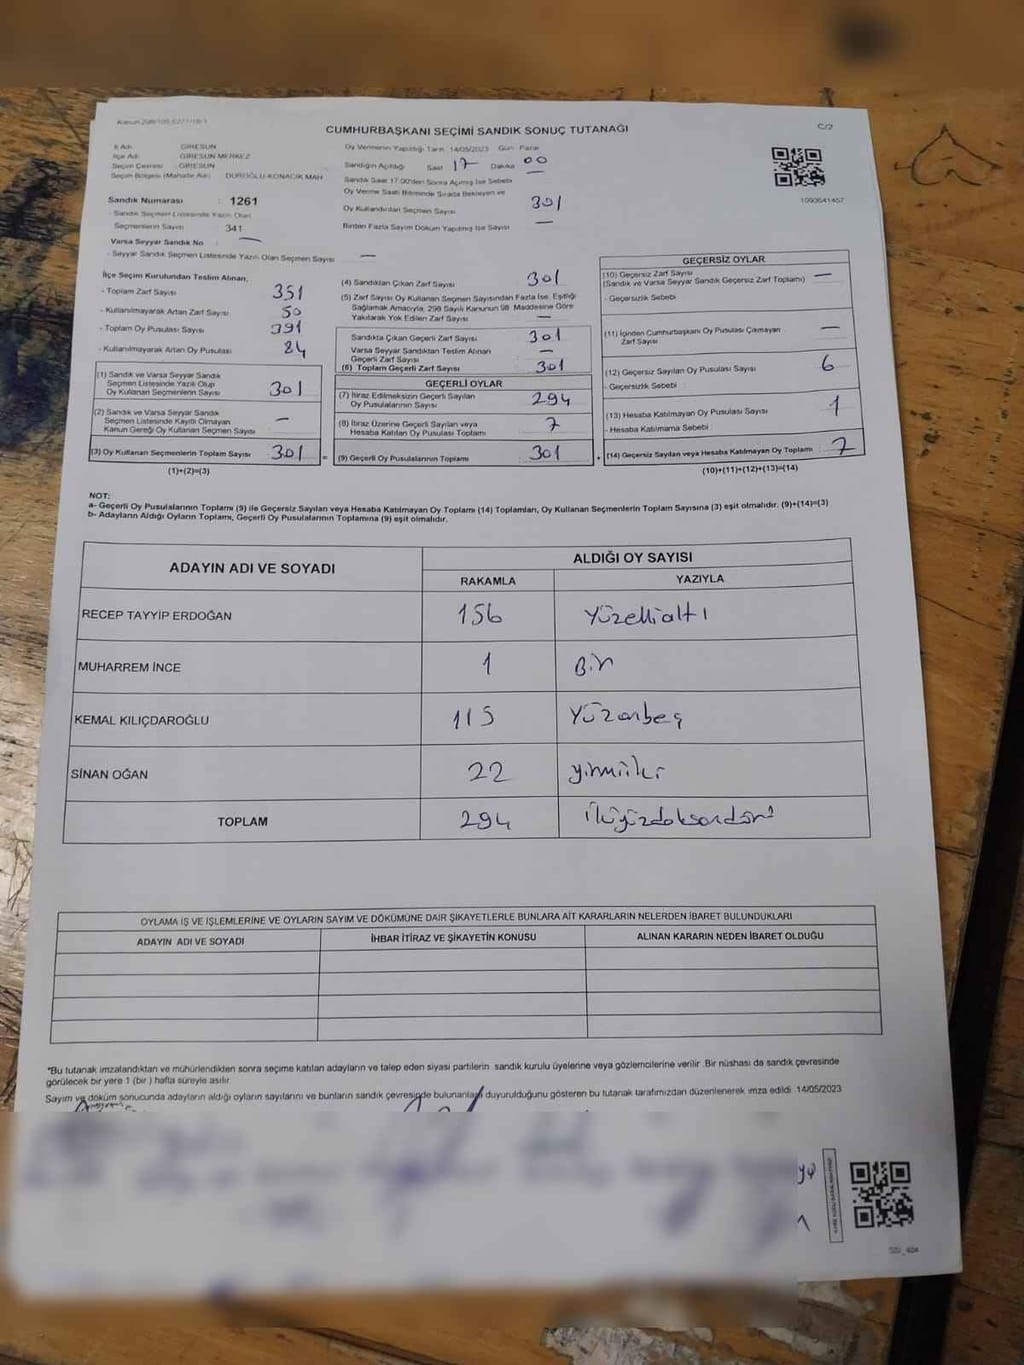 CUMHURBAŞKANI SEÇİMİ SANDIK SONUÇ TUTANAĞI
C/2
İl Adı : GİRESUN
İlçe Adı : GİRESUN MERKEZ
Seçim Çevresi : GİRESUN
Seçim Bölgesi (Mahalle Adı) : DUROĞLU-KONACIK MAH
Oy Vermenin Yapıldığı Tarih 14/05/2023 Gün Pazar
Sandığın Açıldığı Saat 17 Dakika 00
Sandık Saat 17:00'den Sonra Açılmış İse Sebebi —
Oy Verme Saati Bitiminde Sırada Bekleyen ve
Oy Kullandırılan Seçmen Sayısı 301
Birden Fazla Sayım Döküm Yapılmış İse Sayısı —
1093641457
Sandık Numarası : 1261
- Sandık Seçmen Listesinde Yazılı Olan
Seçmenlerin Sayısı 341
Varsa Seyyar Sandık No —
- Seyyar Sandık Seçmen Listesinde Yazılı Olan Seçmen Sayısı —
İlçe Seçim Kurulundan Teslim Alınan;
- Toplam Zarf Sayısı 351
- Kullanılmayarak Artan Zarf Sayısı 50
- Toplam Oy Pusulası Sayısı 391
- Kullanılmayarak Artan Oy Pusulası 84
(1) Sandık ve Varsa Seyyar Sandık
Seçmen Listesinde Yazılı Olup
Oy Kullanan Seçmenlerin Sayısı 301
(2) Sandık ve Varsa Seyyar Sandık
Seçmen Listesinde Kayıtlı Olmayan
Kanun Gereği Oy Kullanan Seçmen Sayısı —
(3) Oy Kullanan Seçmenlerin Toplam Sayısı 301 =
(1)+(2)=(3)
(4) Sandıktan Çıkan Zarf Sayısı 301
(5) Zarf Sayısı Oy Kullanan Seçmen Sayısından Fazla İse, Eşitliği
Sağlamak Amacıyla, 298 Sayılı Kanunun 98. Maddesine Göre
Yakılarak Yok Edilen Zarf Sayısı —
Sandıkta Çıkan Geçerli Zarf Sayısı 301
Varsa Seyyar Sandıktan Teslim Alınan
Geçerli Zarf Sayısı —
(6) Toplam Geçerli Zarf Sayısı 301
GEÇERLİ OYLAR
(7) İtiraz Edilmeksizin Geçerli Sayılan
Oy Pusulalarının Sayısı 294
(8) İtiraz Üzerine Geçerli Sayılan veya
Hesaba Katılan Oy Pusulası Toplamı 7
(9) Geçerli Oy Pusulalarının Toplamı 301 +
GEÇERSİZ OYLAR
(10) Geçersiz Zarf Sayısı
(Sandık ve Varsa Seyyar Sandık Geçersiz Zarf Toplamı) —
- Geçersizlik Sebebi
(11) İçinden Cumhurbaşkanı Oy Pusulası Çıkmayan
Zarf Sayısı —
(12) Geçersiz Sayılan Oy Pusulası Sayısı 6
- Geçersizlik Sebebi
(13) Hesaba Katılmayan Oy Pusulası Sayısı 1
- Hesaba Katılmama Sebebi
(14) Geçersiz Sayılan veya Hesaba Katılmayan Oy Toplamı 7
(10)+(11)+(12)+(13)=(14)
NOT:
a- Geçerli Oy Pusulalarının Toplamı (9) ile Geçersiz Sayılan veya Hesaba Katılmayan Oy Toplamı (14) Toplamları, Oy Kullanan Seçmenlerin Toplam Sayısına (3) eşit olmalıdır. (9)+(14)=(3)
b- Adayların Aldığı Oyların Toplamı, Geçerli Oy Pusulalarının Toplamına (9) eşit olmalıdır.
ADAYIN ADI VE SOYADI ALDIĞI OY SAYISI
RAKAMLA YAZIYLA
RECEP TAYYİP ERDOĞAN 156 Yüzellialtı
MUHARREM İNCE 1 Bir
KEMAL KILIÇDAROĞLU 115 Yüzonbeş
SİNAN OĞAN 22 yirmiiki
TOPLAM 294 ikiyüzdoksandört
OYLAMA İŞ VE İŞLEMLERİNE VE OYLARIN SAYIM VE DÖKÜMÜNE DAİR ŞİKAYETLERLE BUNLARA AİT KARARLARIN NELERDEN İBARET BULUNDUKLARI
ADAYIN ADI VE SOYADI İHBAR İTİRAZ VE ŞİKAYETİN KONUSU ALINAN KARARIN NEDEN İBARET OLDUĞU
*Bu tutanak imzalandıktan ve mühürlendikten sonra seçime katılan adayların ve talep eden siyasi partilerin sandık kurulu üyelerine veya gözlemcilerine verilir. Bir nüshası da sandık çevresinde
görülecek bir yere 1 (bir) hafta süreyle asılır.
Sayım ve döküm sonucunda adayların aldığı oyların sayılarını ve bunların sandık çevresinde bulunanlara duyurulduğunu gösteren bu tutanak tarafımızdan düzenlenerek imza edildi. 14/05/2023